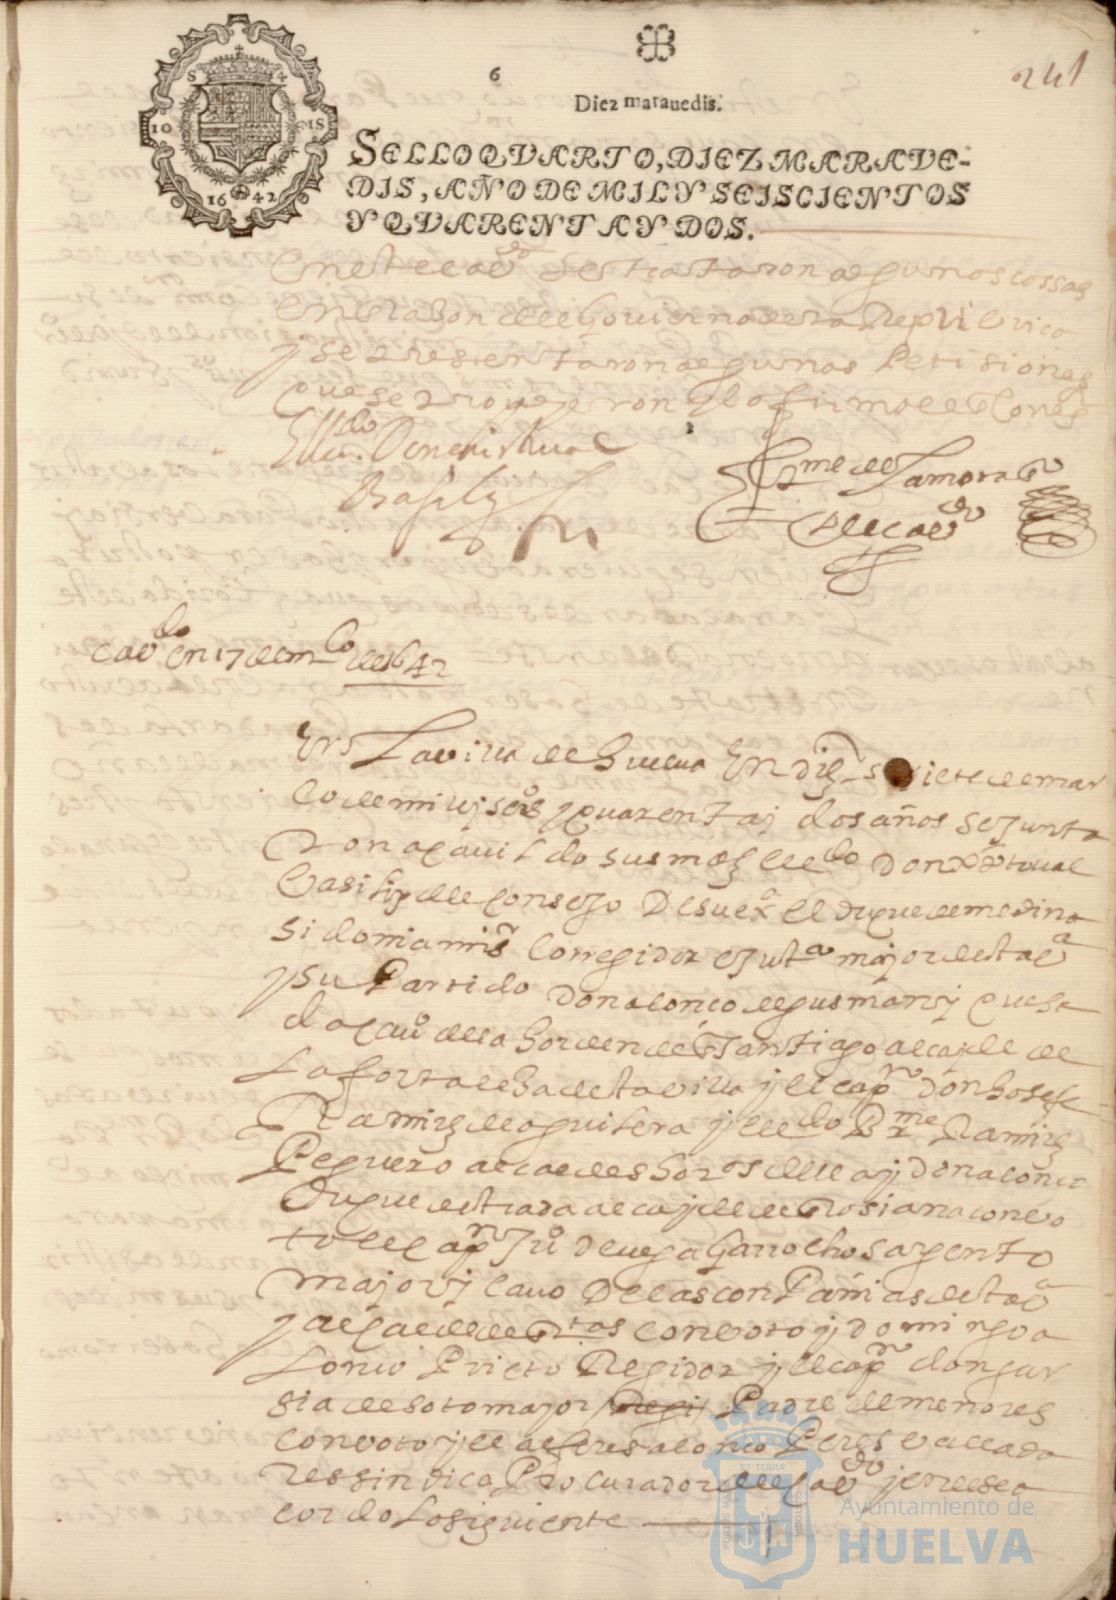 241
6
Diez marauedis.
S 4
10 MS
1642
SELLO QVARTO, DIEZ MARAVE-
DIS, AÑO DE MIL Y SEISCIENTOS
Y QVARENTA Y DOS.
En este cavdo se trataron algunos cossas
En Rason del Govierno de la Republica
y se presentaron algunas Petisiones
que se proveyeron y lo firmo el Correg
El Licdo Don Christoval
Basilis
Pme de Zamora
del cavdo
Cavdo en 17 de mço de 1642
En La villa de Guelua En diez y siete de mar
ço de mil y seisos y quarenta y dos años se junta
ron a cauildo sus mds el ldo Don Xptoual
Basilis del Consejo De su exa el duque de medina
sidonia mi sr Corregidor e justa mayor desta va
y su Partido Don alonco de gusman y quesa
do cauo de la horden de Santiago alcayde de
La fortaleza desta villa y el cappn don Hosefe
Ramires de aguilera y el ldo Bme Ramires
Peguero alcaldes hordros della y don alonco
Duque estrada alcayde de Rosiana con vo
to el cappn Juo de uega Garrocho sargento
mayor y cauo De las conPañias desta va
y alcalde de Rtas con voto y domingo a
Lonco Prieto Regidor y el cappn don gar
sia de sotomajor Padre de menores
con voto y el alferes alonco Peres vallada
res sindico Procurador del Cavdo y en el se a
cordo Lo siguiente
Ayuntamiento de
HUELVA